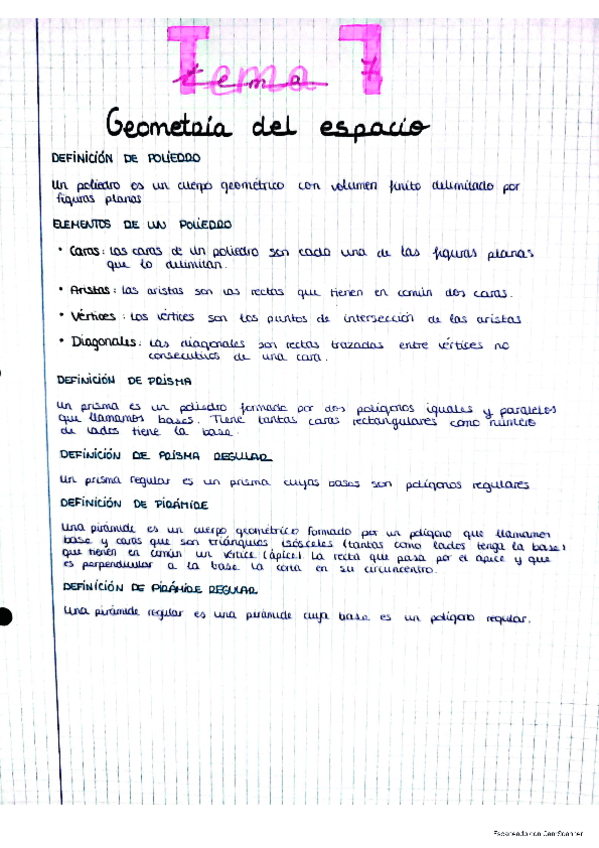 Tema 7
Geometría del espacio
DEFINICIÓN DE POLIEDRO
Un poliedro es un cuerpo geométrico con volumen finito delimitado por
figuras planas
ELEMENTOS DE UN POLIEDRO
• Caras: las caras de un poliedro son cada una de las figuras planas
que lo delimitan.
• Aristas: las aristas son las rectas que tienen en común dos caras.
• Vértices: los vértices son los puntos de intersección de las aristas
• Diagonales: las diagonales son rectas trazadas entre vértices no
consecutivos de una cara.
DEFINICIÓN DE PRISMA
Un prisma es un poliedro formado por dos polígonos iguales y paralelos
que llamamos bases. Tiene tantas caras rectangulares como número
de lados tiene la base.
DEFINICIÓN DE PRISMA REGULAR
Un prisma regular es un prisma cuyas bases son polígonos regulares
DEFINICIÓN DE PIRÁMIDE
Una pirámide es un cuerpo geométrico formado por un polígono que llamamos
base y caras que son triángulos isósceles (tantas como lados tenga la base)
que tienen en común un vértice (ápice). La recta que pasa por el ápice y que
es perpendicular a la base la corta en su circuncentro.
DEFINICIÓN DE PIRÁMIDE REGULAR
Una pirámide regular es una pirámide cuya base es un polígono regular.
Escaneado con CamScanner